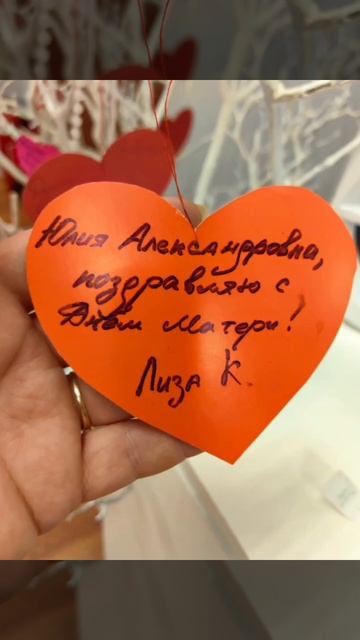 Юлия Александровна,
поздравляю с
Днём Матери!
Лиза К.